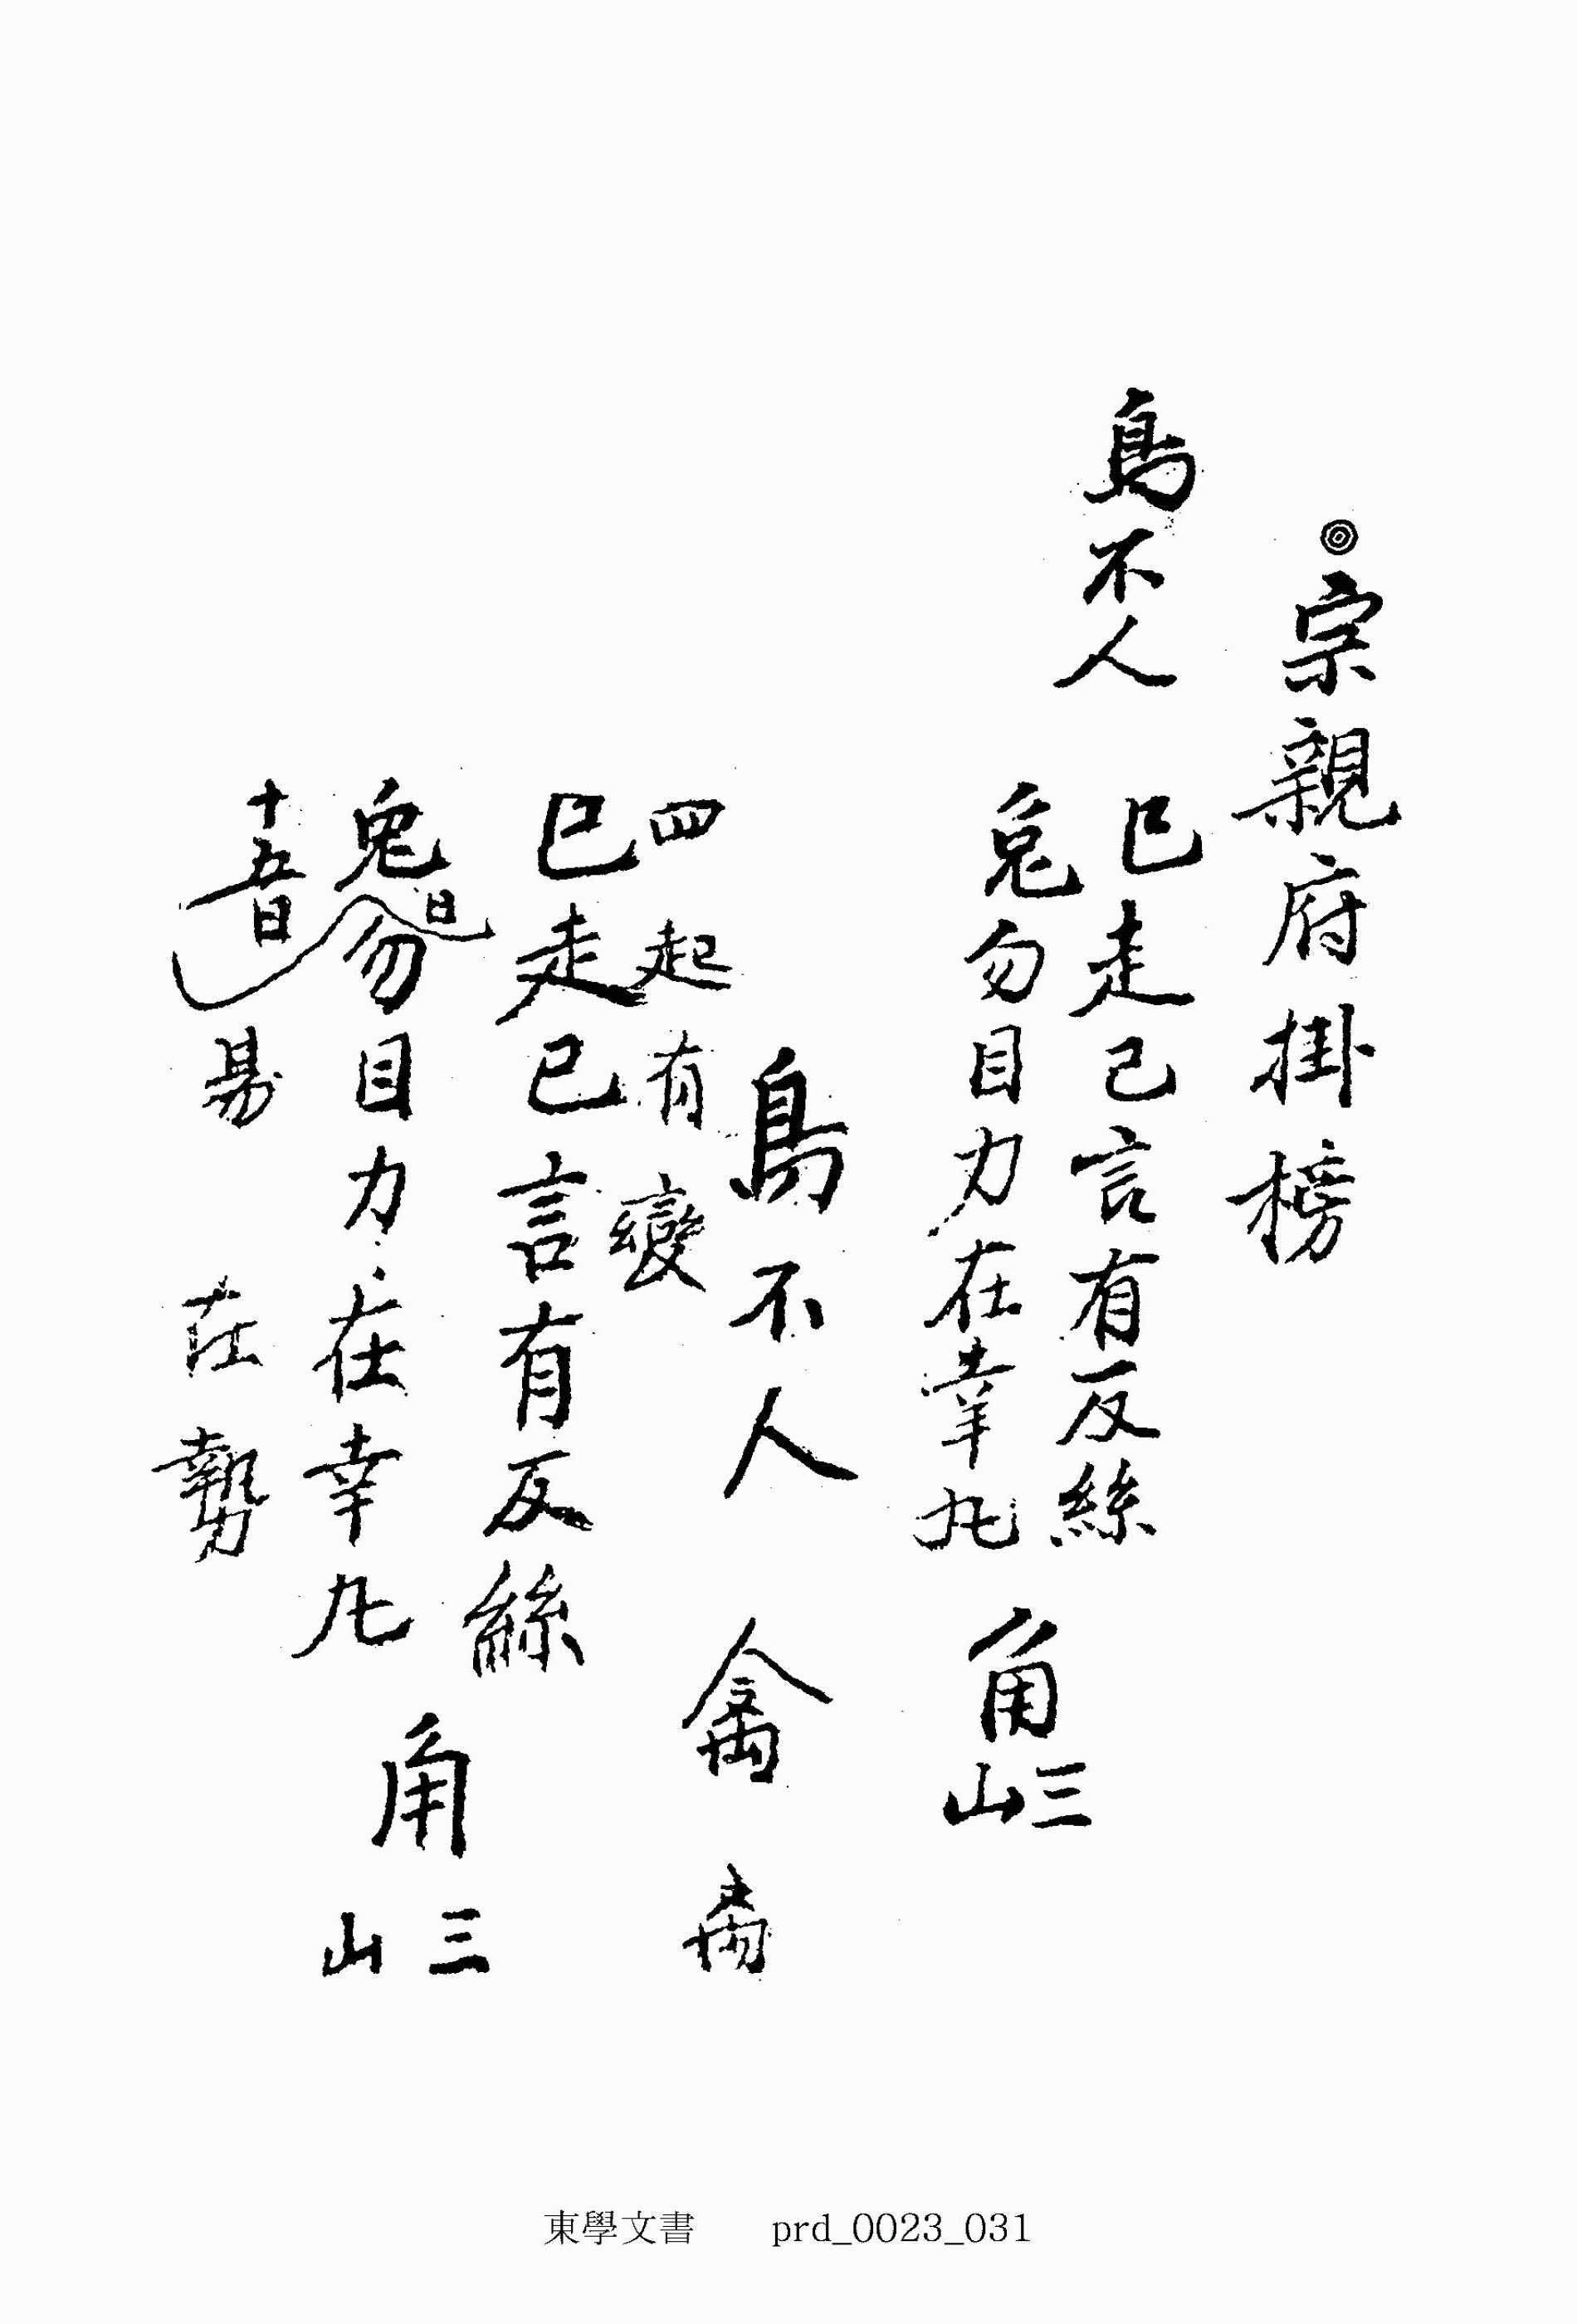 ◎宗親府掛榜
鳥不人
巳走己言有反絲
兔勿目力在幸九
角
三山
鳥不人 禽
四起有變
巳走已言有反絲
鬼勿目力在幸九
角
三山
十五日
日
易 在 勢
東學文書 prd_0023_031